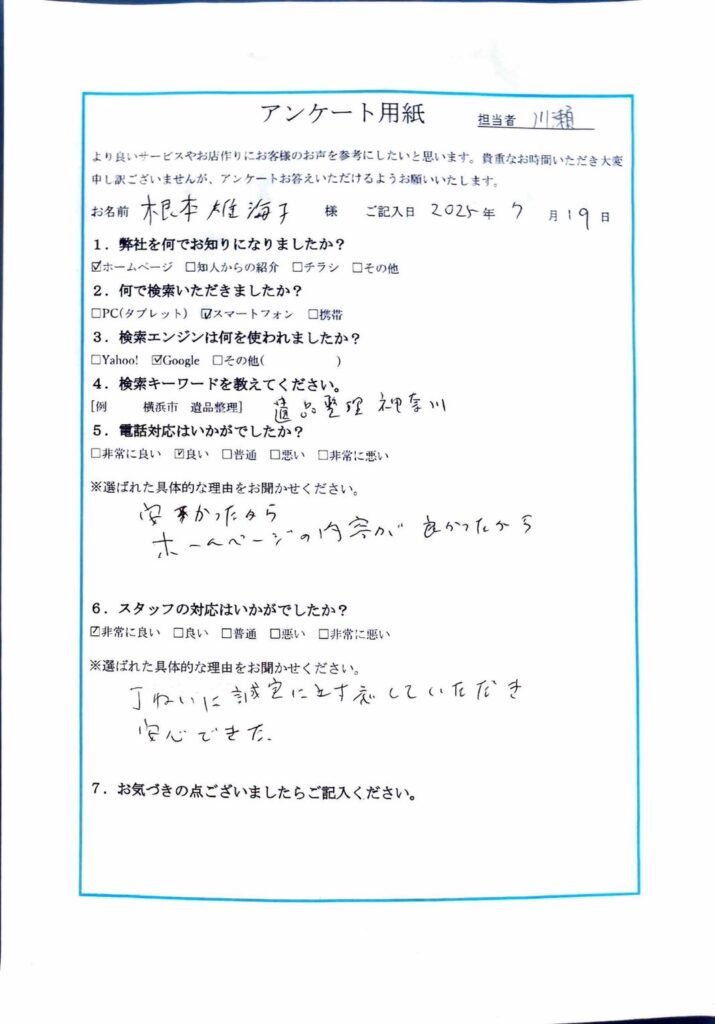 アンケート用紙
担当者 川瀬
より良いサービスやお店作りにお客様のお声を参考にしたいと思います。貴重なお時間いただき大変
申し訳ございませんが、アンケートお答えいただけるようお願いいたします。
お名前 根本雄海子 様 ご記入日 2025年 7月19日
1．弊社を何でお知りになりましたか？
☑ホームページ □知人からの紹介 □チラシ □その他
2．何で検索いただきましたか？
□PC(タブレット) ☑スマートフォン □携帯
3．検索エンジンは何を使われましたか？
□Yahoo! ☑Google □その他( )
4．検索キーワードを教えてください。
[例 横浜市 遺品整理] 遺品整理 神奈川
5．電話対応はいかがでしたか？
□非常に良い ☑良い □普通 □悪い □非常に悪い
※選ばれた具体的な理由をお聞かせください。
安かったから
ホームページの内容が良かったから
6．スタッフの対応はいかがでしたか？
☑非常に良い □良い □普通 □悪い □非常に悪い
※選ばれた具体的な理由をお聞かせください。
丁ねいに誠実に対応していただき
安心できた。
7．お気づきの点ございましたらご記入ください。